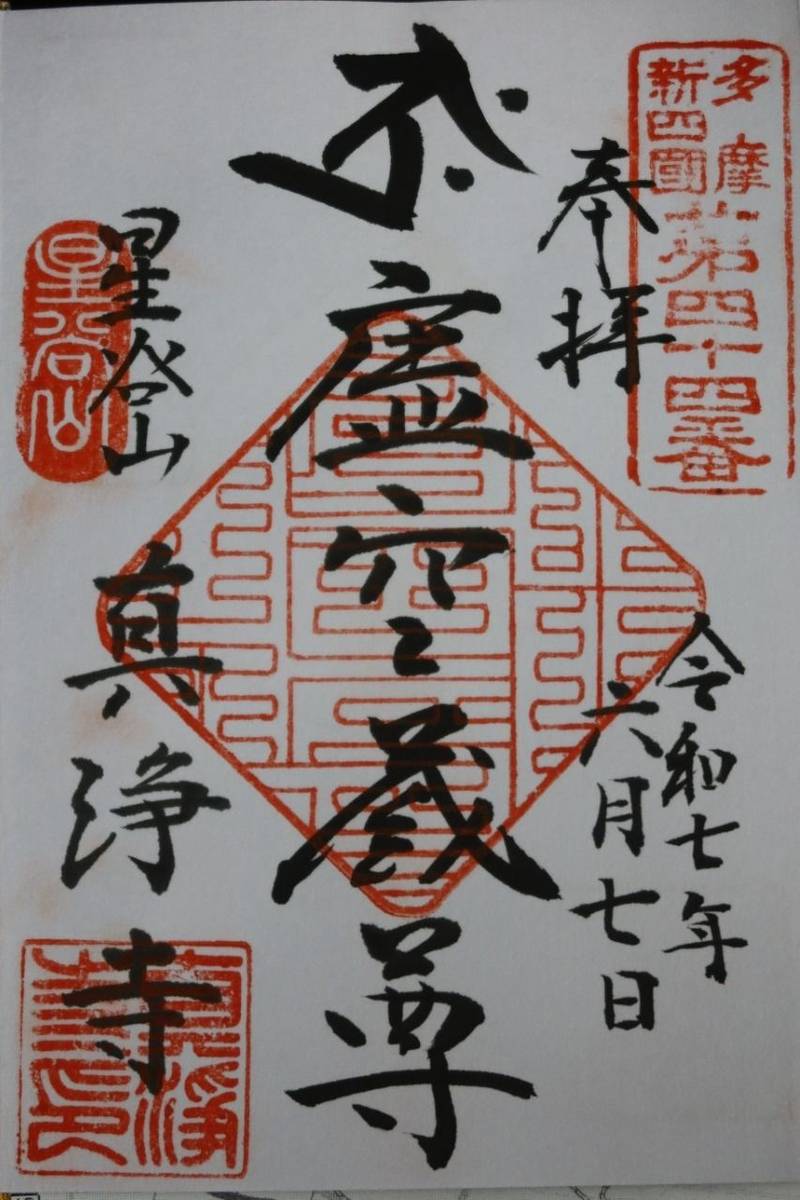 多摩
新四國
第四十四番
奉拝
令和七年
六月七日
虚空蔵尊
星谷山
星谷山
真浄寺